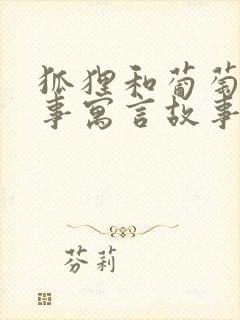 狐狸和葡萄
事寓言故事
芬莉